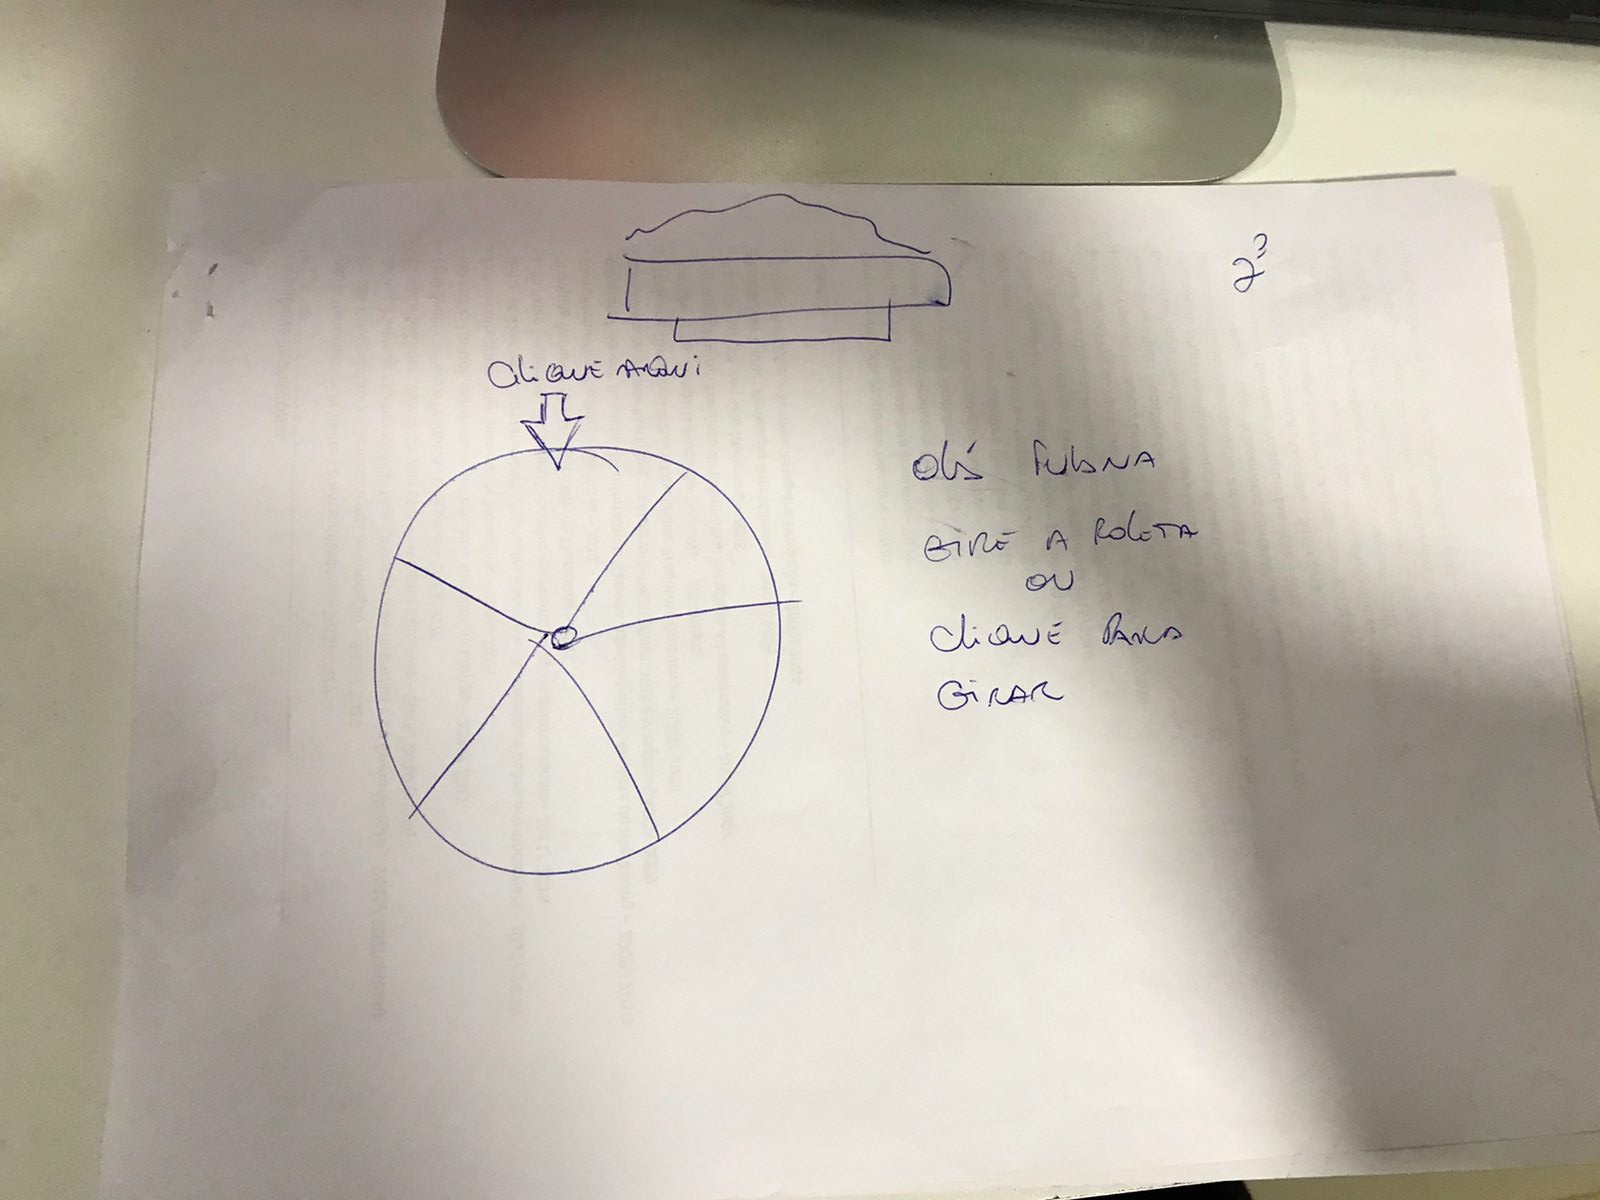 2³
CLIQUE AQUI
Olá FULANA
GIRE A ROLETA
OU
CLIQUE PARA
GIRAR